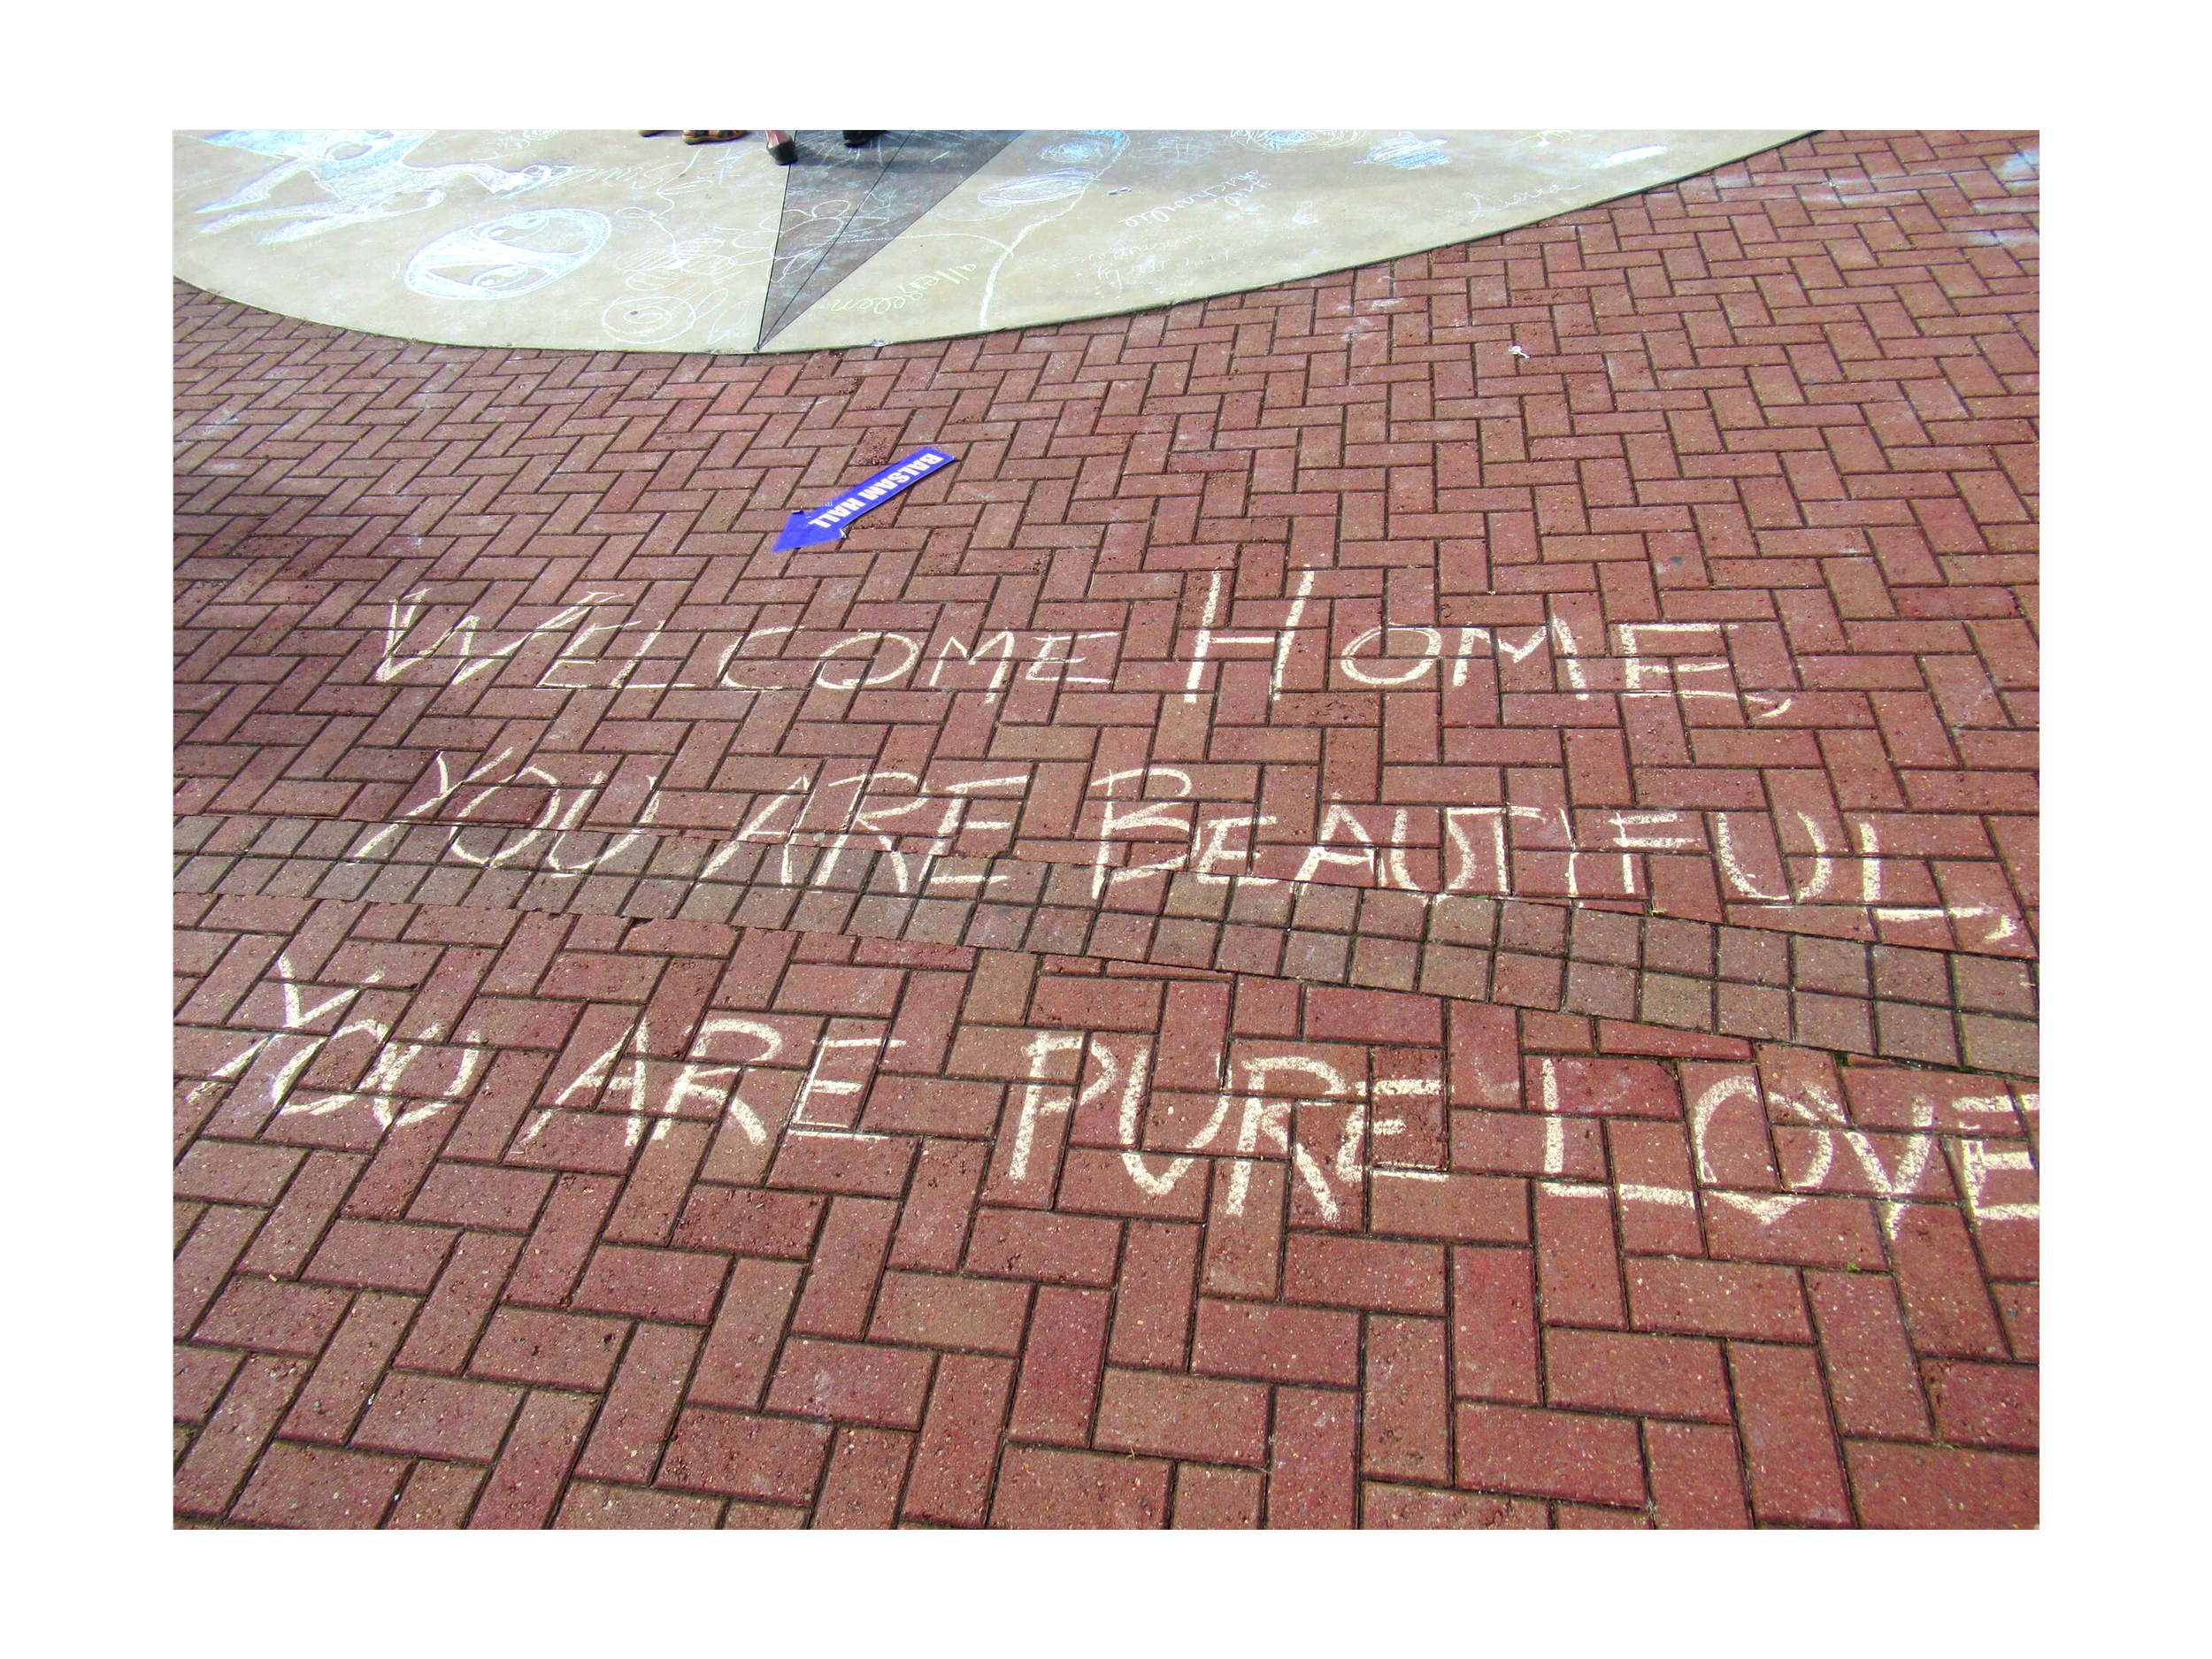 allergeden
Sierra
BALSAM HALL
WELCOME HOME,
YOU ARE BEAUTIFUL,
YOU ARE PURE LOVE